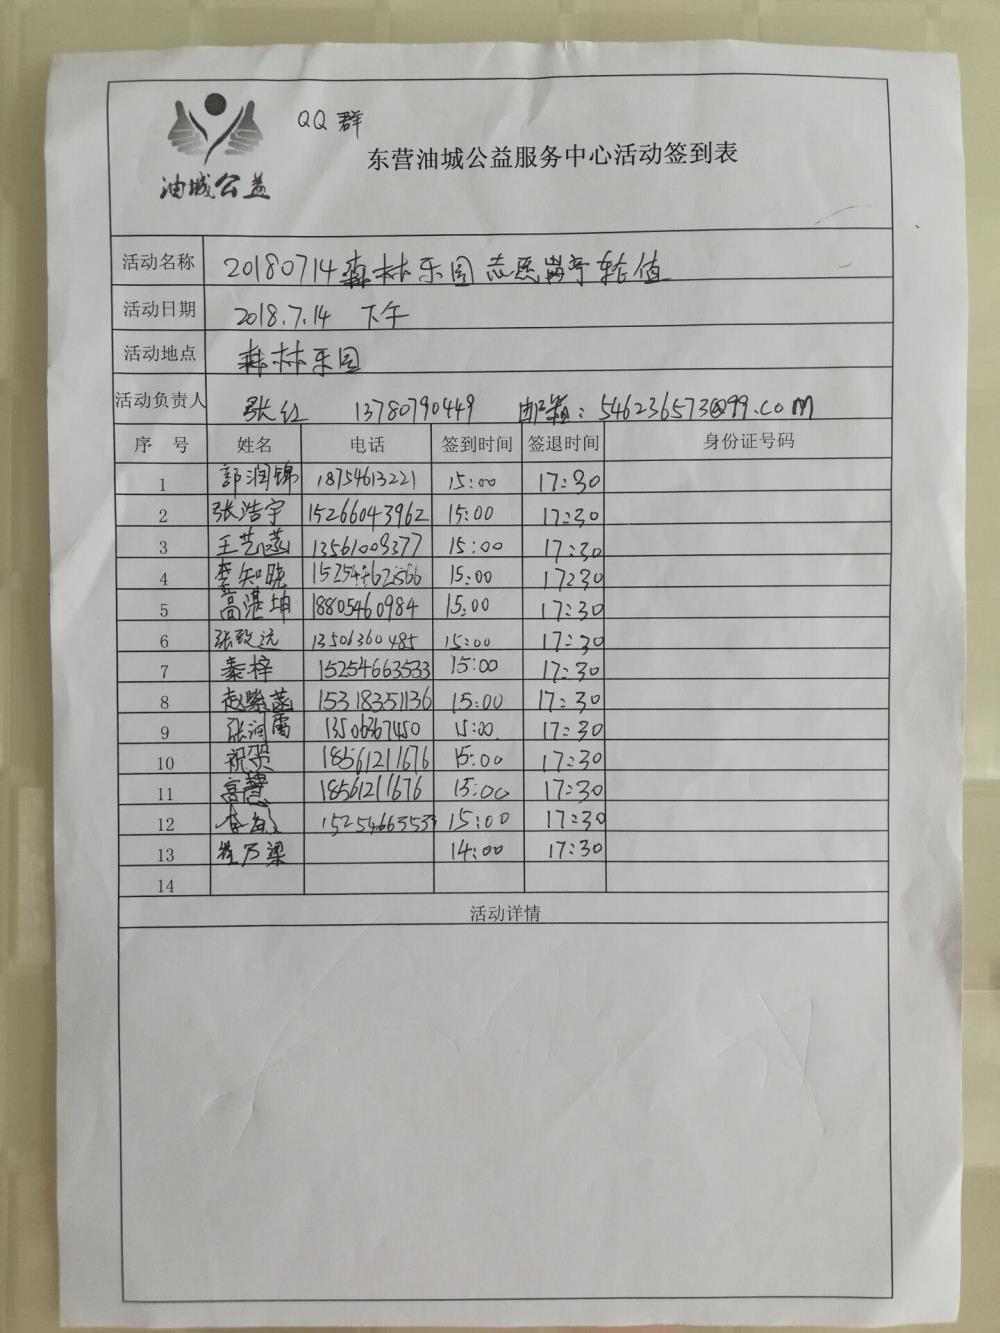 QQ群
油城公益
东营油城公益服务中心活动签到表
活动名称 20180714森林乐园志愿岗亭轮值
活动日期 2018.7.14 下午
活动地点 森林乐园
活动负责人 张红 13780790449 邮箱：546236573@99.com
序号 姓名 电话 签到时间 签退时间 身份证号码
1 郭润锦 18754613221 15:00 17:30
2 张浩宇 15266043962 15:00 17:30
3 王艺菡 13561009377 15:00 17:30
4 李知晓 15:00 17:30
5 高湛坤 18805460984 15:00 17:30
6 张致远 13506360485 15:00 17:30
7 秦梓 15254663533 15:00 17:30
8 赵紫菡 15318351136 15:00 17:30
9 张润雷 13506367450 15:00 17:30
10 祝贺 18561211676 15:00 17:30
11 高慧 18561211676 15:00 17:30
12 李 15254663533 15:00 17:30
13 崔乃梁 14:00 17:30
14
活动详情